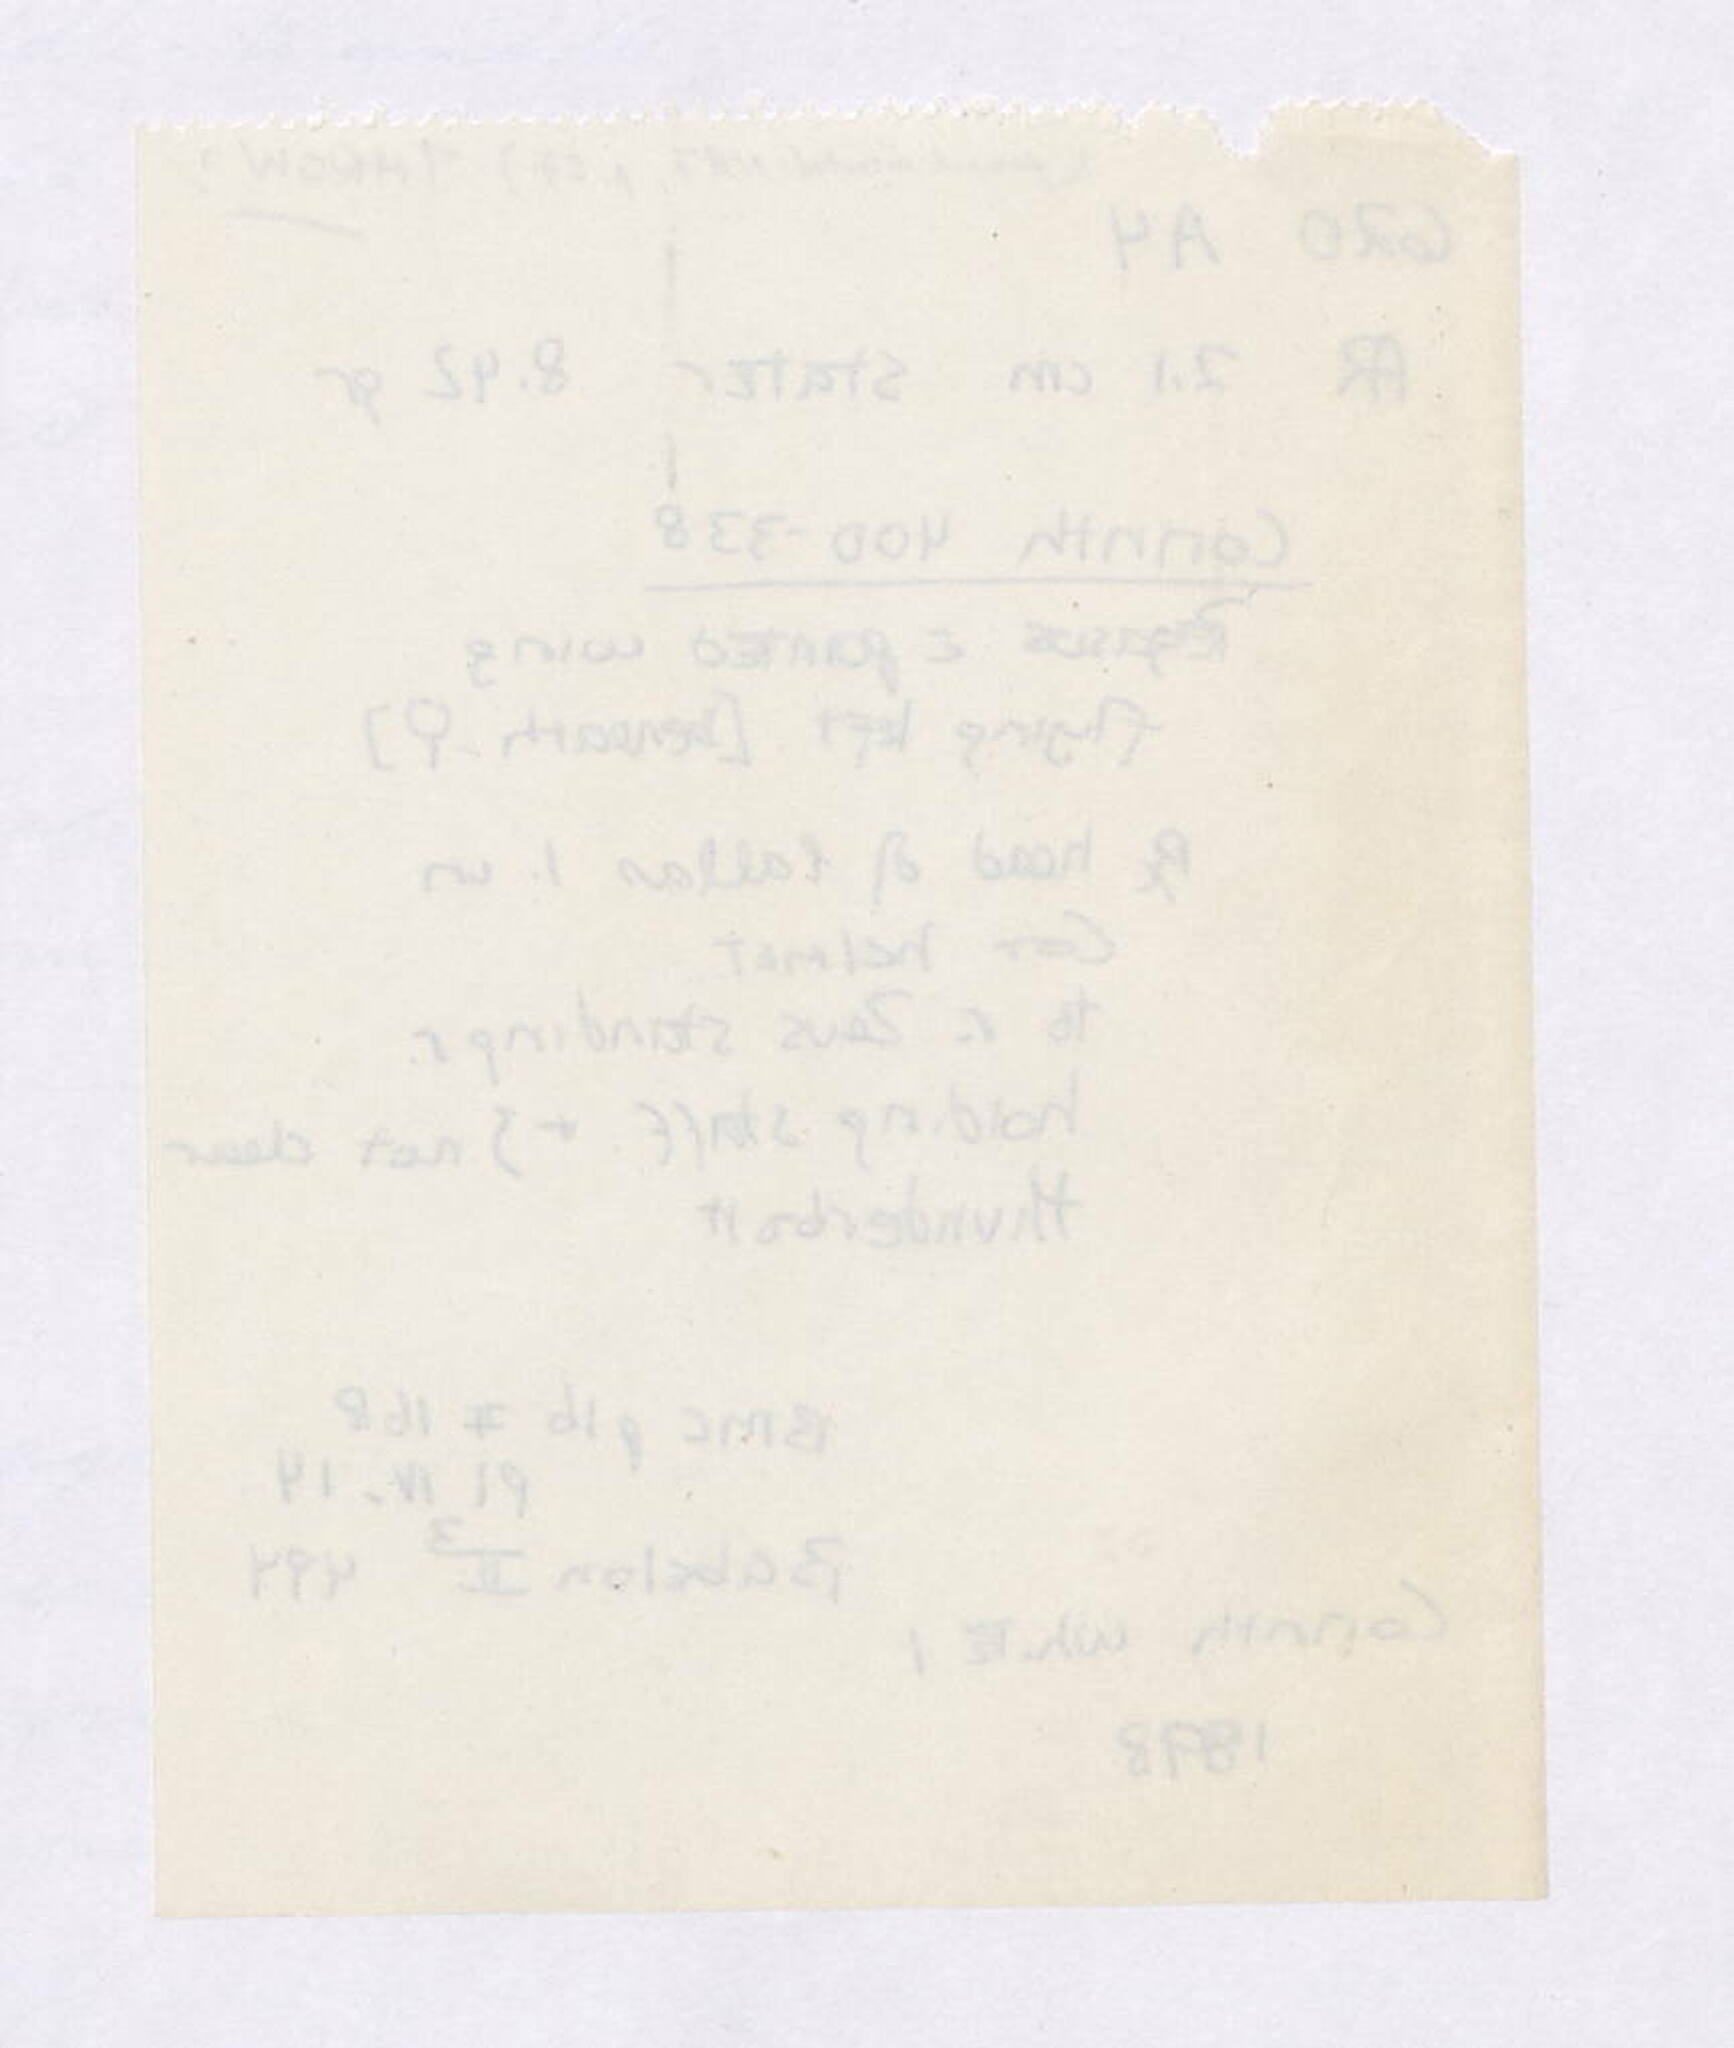 GRO A4
AR 2.1 cm stater 8.42 gr
Corinth 400-338
Pegasus c pointed wing
flying left [beneath Ϙ]
Rx head of Pallas l. in
Cor helmet
to r. Zeus standing r.
holding staff + } not clear
thunderbolt
BMC p16 # 168
Pl IV. 14
Babelon II³ 494
Corinth White 1
1898